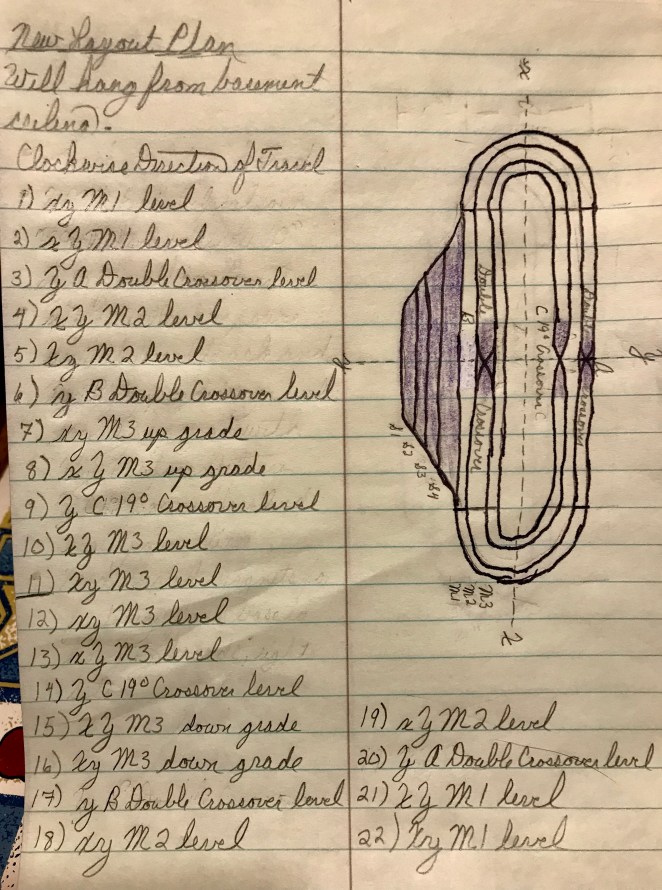 New Layout Plan
Will hang from basement
ceiling.
Clockwise Direction of Travel
1) xy M1 level
2) x y M1 level
3) y A Double Crossover level
4) x y M2 level
5) xy M2 level
6) y B Double Crossover level
7) xy M3 up grade
8) x y M3 up grade
9) y C 19° Crossover level
10) x y M3 level
11) xy M3 level
12) xy M3 level
13) x y M3 level
14) y C 19° Crossover level
15) x y M3 down grade
16) xy M3 down grade
17) y B Double Crossover level
18) xy M2 level
19) x y M2 level
20) y A Double Crossover level
21) x y M1 level
22) xy M1 level
x
y
Double
B
Crossover
C 19° Crossover C
Double
Crossover
y
S1
S2
S3
S4
M3
M2
M1
x